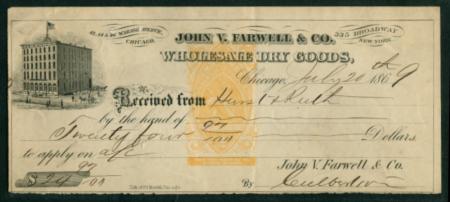 JOHN V. FARWELL & CO.
CHICAGO.
335 BROADWAY
NEW YORK.
WHOLESALE DRY GOODS,
Chicago, July 20th 1869
Received from Hurst & Ruth
by the hand of
Twenty four Dollars
to apply on a/c
John V. Farwell & Co.
$24
By